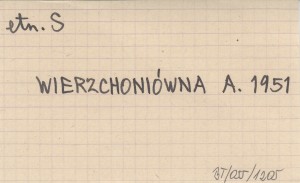 etn. S
WIERZCHONIÓWNA A. 1951
BT/OJJ/1205